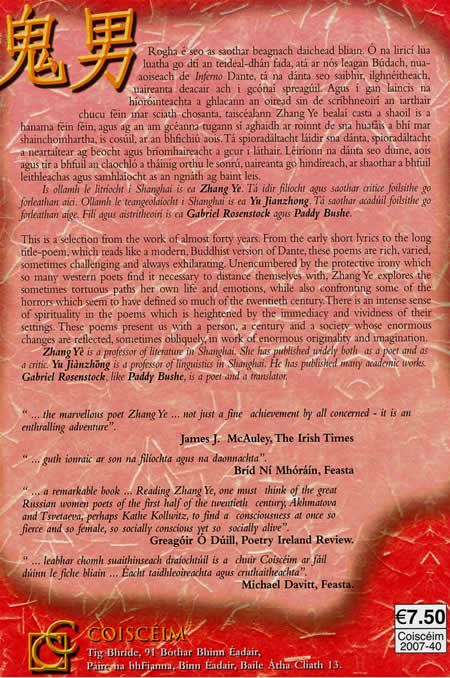 鬼男
Rogha é seo as saothar beagnach daichead bliain. Ó na liricí lua
luatha go dtí an teideal-dhán fada, atá ar nós leagan Búdach, nua-
aoiseach de Inferno Dante, tá na dánta seo saibhir, ilghnéitheach,
uaireanta deacair ach i gcónaí spreagúil. Agus í gan laincis na
híoróinteachta a ghlacann an oiread sin de scríbhneoirí an iarthair
chucu féin mar sciath chosanta, taiscéalann Zhang Ye bealaí casta a shaoil is a
hanama féin féin, ag an am gcéanna tugann sí aghaidh ar roinnt de sna huafáis a bhí mar
shainchomhartha, is cosúil, ar an bhfichiú aois. Tá spioradáltacht láidir sna dánta, spioradáltacht
a neartaítear ag beocht agus bríomhaireacht a gcur i láthair. Léiríonn na dánta seo duine, aois
agus tír a bhfuil an claochló a tháinig orthu le sonrú, uaireanta go hindíreach, ar shaothar a bhfuil
leithleachas agus samhlaíocht as an ngnáth ag baint leis.
Is ollamh le litríocht i Shanghai is ea Zhang Ye. Tá idir filíocht agus saothar critice foilsithe go
forleathan aici. Ollamh le teangeolaíocht i Shanghai is ea Yu Jianzhong. Tá saothar acadúil foilsithe go
forleathan aige. Filí agus aistritheoirí is ea Gabriel Rosenstock agus Paddy Bushe.
This is a selection from the work of almost forty years. From the early short lyrics to the long
title-poem, which reads like a modern, Buddhist version of Dante, these poems are rich, varied,
sometimes challenging and always exhilarating. Unencumbered by the protective irony which
so many western poets find it necessary to distance themselves with, Zhang Ye explores the
sometimes tortuous paths her own life and emotions, while also confronting some of the
horrors which seem to have defined so much of the twentieth century. There is an intense sense
of spirituality in the poems which is heightened by the immediacy and vividness of their
settings. These poems present us with a person, a century and a society whose enormous
changes are reflected, sometimes obliquely, in work of enormous originality and imagination.
Zhang Yè is a professor of literature in Shanghai. She has published widely both as a poet and as
a critic. Yu Jiànzhōng is a professor of linguistics in Shanghai. He has published many academic works.
Gabriel Rosenstock, like Paddy Bushe, is a poet and a translator.
" ... the marvellous poet Zhang Ye ... not just a fine achievement by all concerned - it is an
enthralling adventure".
James J. McAuley, The Irish Times
" ... guth ionraic ar son na filíochta agus na daonnachta".
Bríd Ní Mhóráin, Feasta
" ... a remarkable book ... Reading Zhang Ye, one must think of the great
Russian women poets of the first half of the twentieth century, Akhmatova
and Tsvetaeva, perhaps Kathe Kollwitz, to find a consciousness at once so
fierce and so female, so socially conscious yet so socially alive".
Greagóir Ó Dúill, Poetry Ireland Review.
" ... leabhar chomh suaithinseach draíochtúil is a chuir Coiscéim ar fáil
dúinn le fiche bliain ... Éacht taidhleoireachta agus cruthaitheachta".
Michael Davitt, Feasta.
COISCÉIM
Tig Bhríde, 91 Bóthar Bhinn Éadair,
Páirc na bhFianna, Binn Éadair, Baile Átha Cliath 13.
€7.50
Coiscéim
2007-40